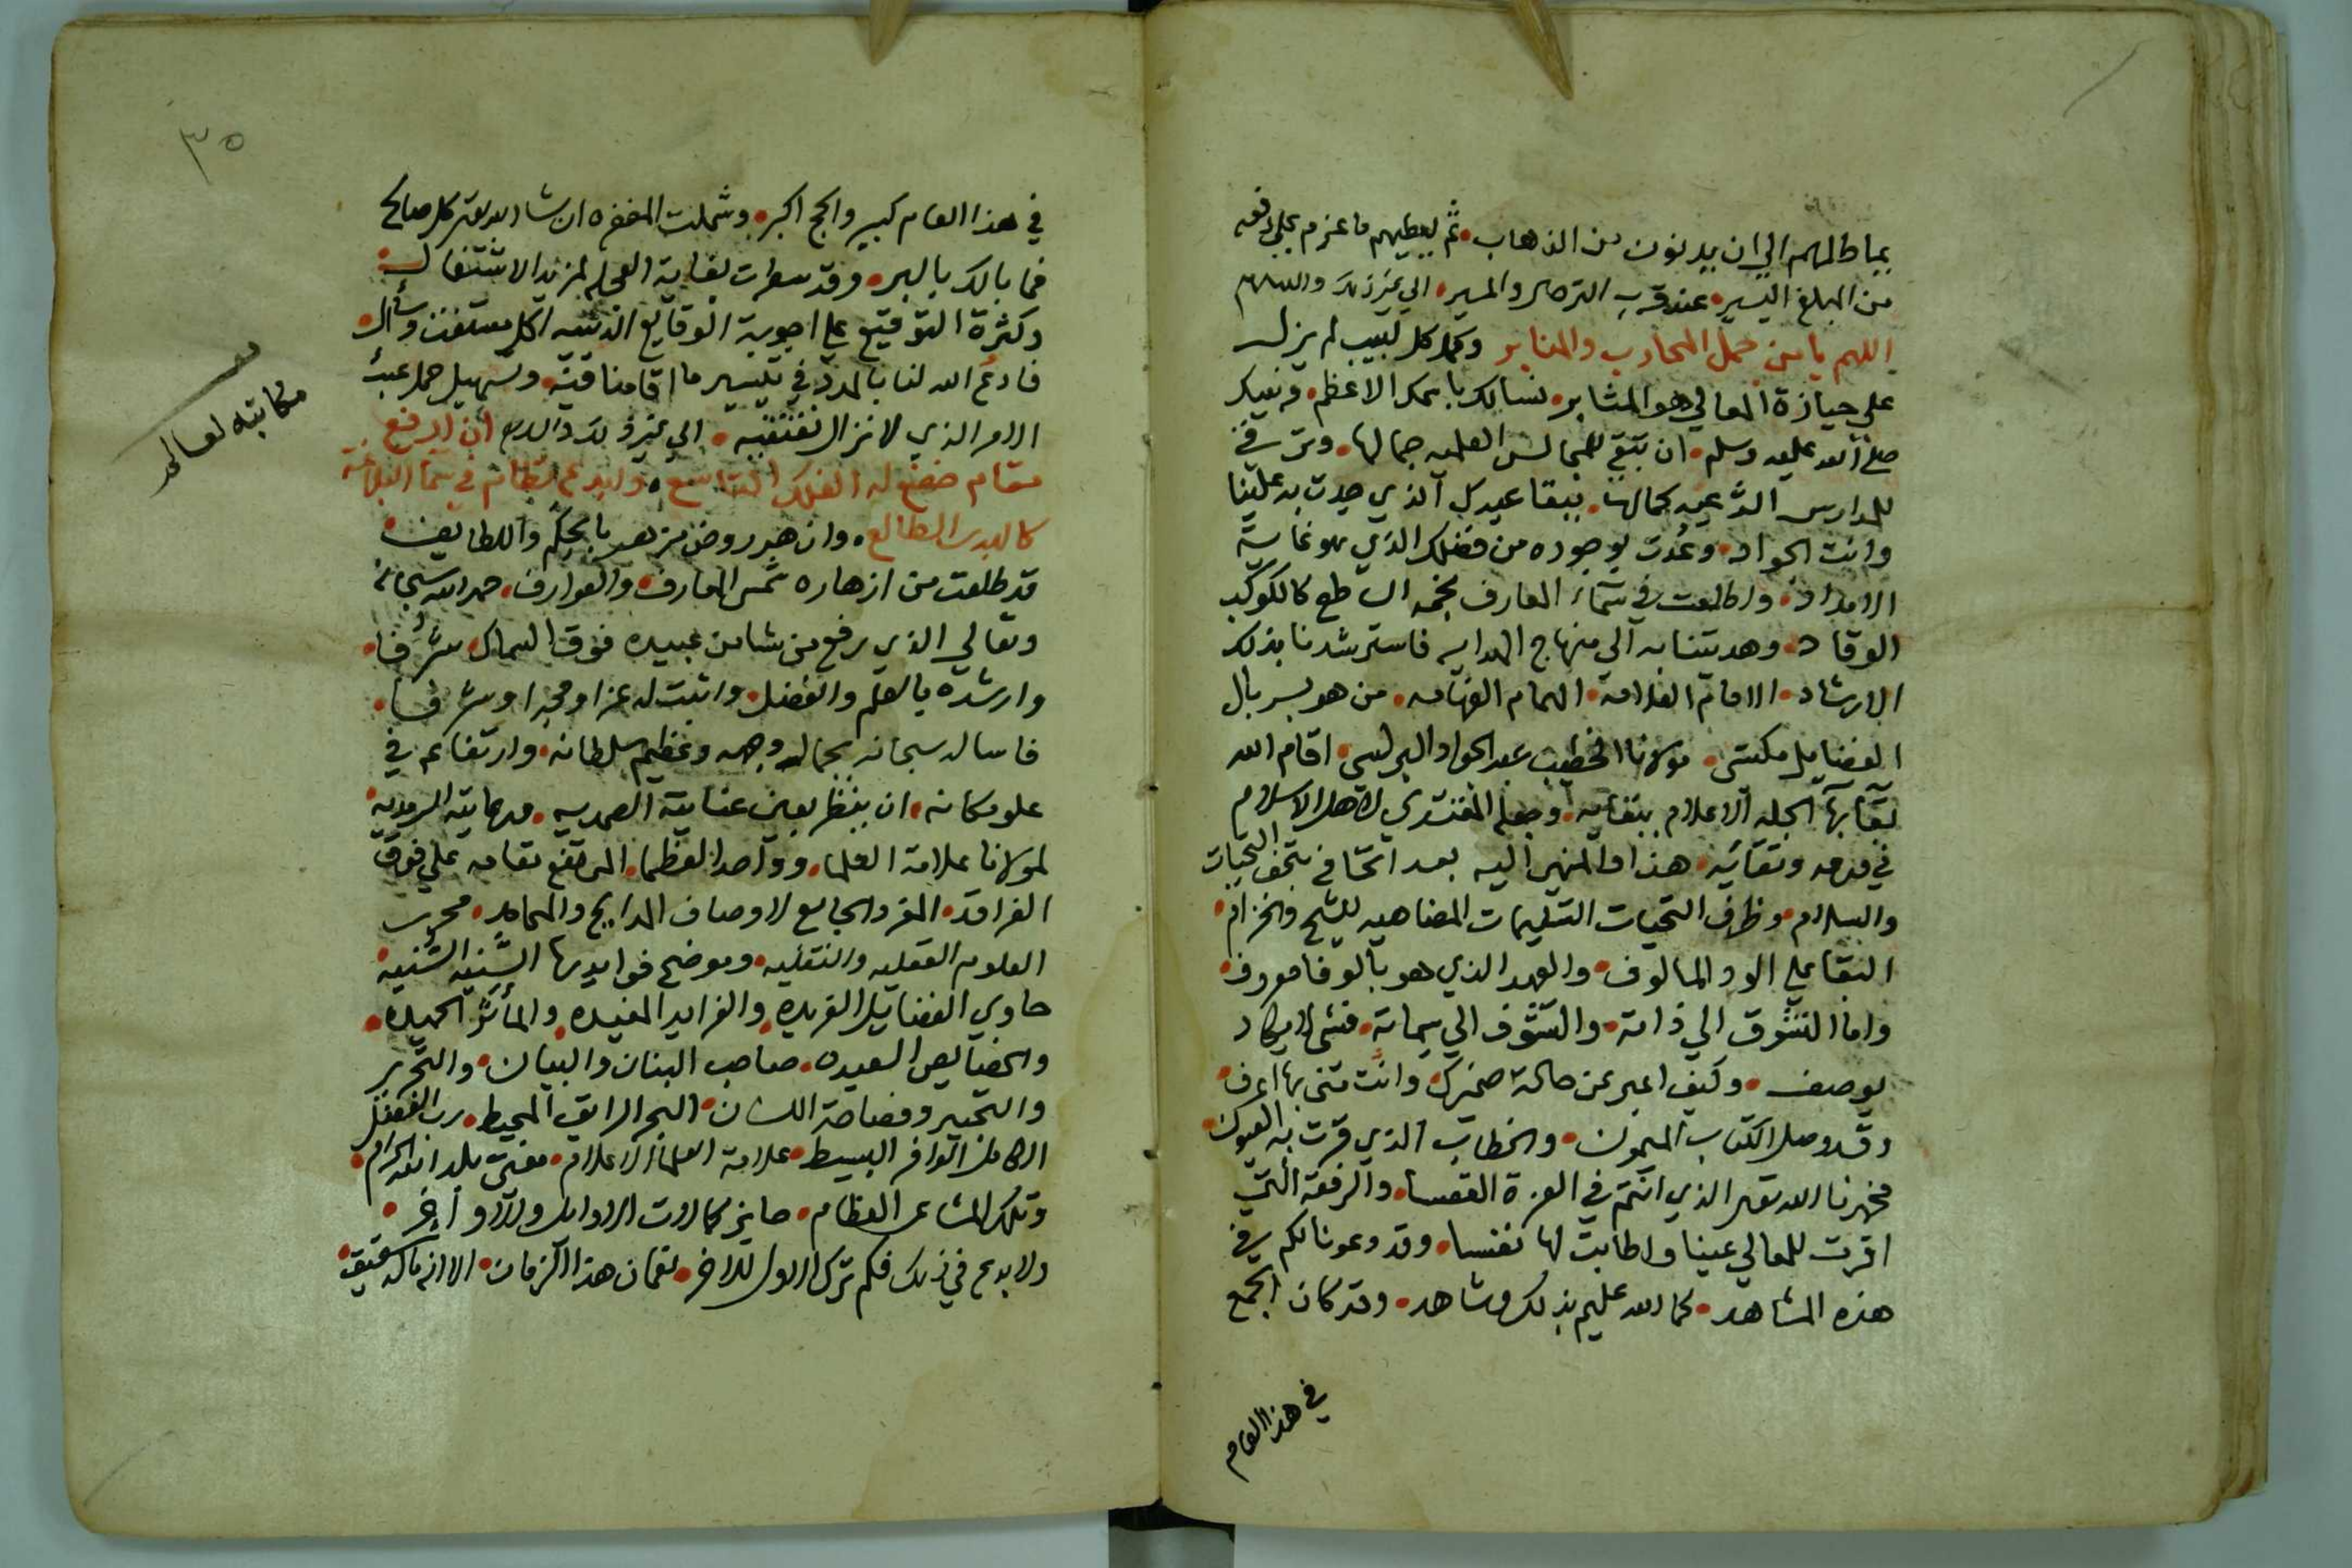 بماطالهم الي ان يدنون من الذهاب • ثم يعطيهم ما عزم علي دفعه
من المبلغ اليسير • عند قرب الترحل والمسير • الي غير ذلك والسلام
اللهم يا من جمل المحارب والمنابر وكمل كل لبيب لم يزل
علي حيازة المعالي هو المثابر • نسالك باسمك الاعظم • ونبيك
صلي الله عليه وسلم • ان تبقي للمجالس العلميه جمالها • وترقي
للمدارس الشرعيه كمالها • ببقا عبدك الذي جدت به علينا
وانت الجواد • وعُدت بوجوده من فضلك الذي هو غاية
الامداد • واطلعت في سماء المعارف نجمه الساطع كالكوكب
الوقاد • وهديتنا به الي منهاج الهدايه فاسترشدنا بذلك
الارشاد • الامام العلامة • الهمام الفهامه • من هو بسربال
الفضايل مكتسي • مولانا الخطيب عبد الجواد البرلسي • اقام الله
تعالي به الجلة الاعلام ببقايه • وجعله المقتدي لاهل الاسلام
في قدمه وبقائه • هذا والمنهي اليه بعد اتحافي بتحف التحيات
والسلام • وظرف التحيات التسليمات المضاهيه للشيح والخزام •
البقا علي الود المالوف • والعهد الذي هو بالوفا معروف •
واما التشوق الي ذاته • والتشوف الي سماته • فشي لا يكاد
يوصف • وكيف اعبر عن حالة ضميرك • وانت مني بها اعرف •
وقد وصل الكتاب الميمون • والخطاب الذي قرت به العيون •
فخبرنا الله تعالي الذي انتم في العزة القعسا • والرفعة التي
اقرت للمعالي عينا واطابت لها نفسا • وقد دعونا لكم في
هذه المشاهد • كما الله عليم بذلك وشاهد • وقد كان الجمع
في هذا العام
٣٥
في هذا العام كبير والحج اكبر • وشملت المغفره ان شاء الله تعالي كل صالح
فما بالك بالبر • وقد سطرت بغاية العجل لمزيد الاشتغال •
وكثرة التوقيع علي اجوبة الوقايع الدينيه لكل مستفت وسأال •
فادع الله لنا بالمدد في تيسير ما اقامنا فيه • وتسهيل حمل عبئ
الامر الذي لا نزال نقتفيه • الي غير ذلك والسلام ان ارفع
مقام خضع له الفلك التاسع • وابدع نظام في سما البلاغة
كالبدر الطالع • وازهر روض مزهر بالحكم واللطايف •
قد طلعت من ازهاره شمس المعارف والعوارف • حمد الله سبحانه
وتعالي الذي رفع من شا من عبيده فوق السماك شرفا •
وارشده بالعلم والفضل • واثبت له عزا ومجدا وشرفا •
فاساله سبحانه بجمال وجهه وعظيم سلطانه • وارتفاعه في
علو مكانه • ان ينظر بعين عنايته الصمديه • ورعايته السرمديه •
لمولانا علامة العلما • وواحد العظما • المرتفع مقامه علي فوق
الفراقد • المفرد الجامع لاوصاف المدايح والمحامد • محرر
العلوم العقليه والنقليه • وموضح فوايدها السنيه السنيه •
حاوي الفضايل الفريده • والفرايد المفيده • والمأثر الحميده •
والخصايص السعيده • صاحب البنان والبيان • والتحرير
والتحبير وفصاحة اللسان • البحر الرايق المحيط • رب الفضل
الكامل الوافر البسيط • علامة العلما الاعلام • مفتي بلد الله الحرام •
وتلك المشاعر العظام • حايز كمالات الاوايل والاواخر •
ولا بدع في ذلك فكم ترك الاول للاخر • نعمان هذا الزمان • الا انه مالك شقيق •
مكاتبه لعالم